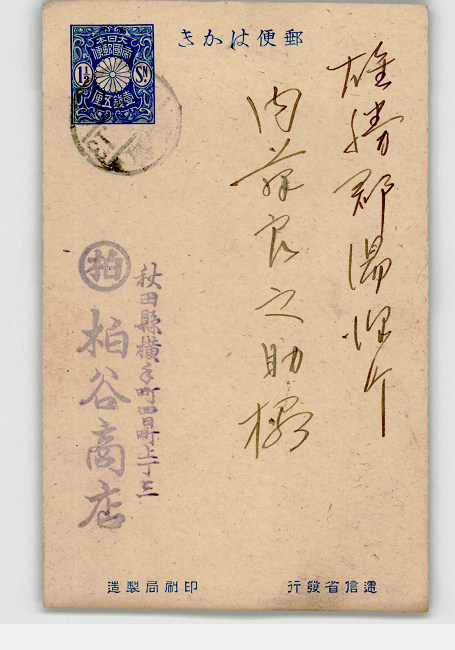 郵便はかき
大日本
帝國郵便
1½ Sn
壹錢五厘
雄勝郡湯沢町
内藤良之助様
秋田縣横手町四日町上丁
柏
柏谷商店
遞信省發行
印刷局製造